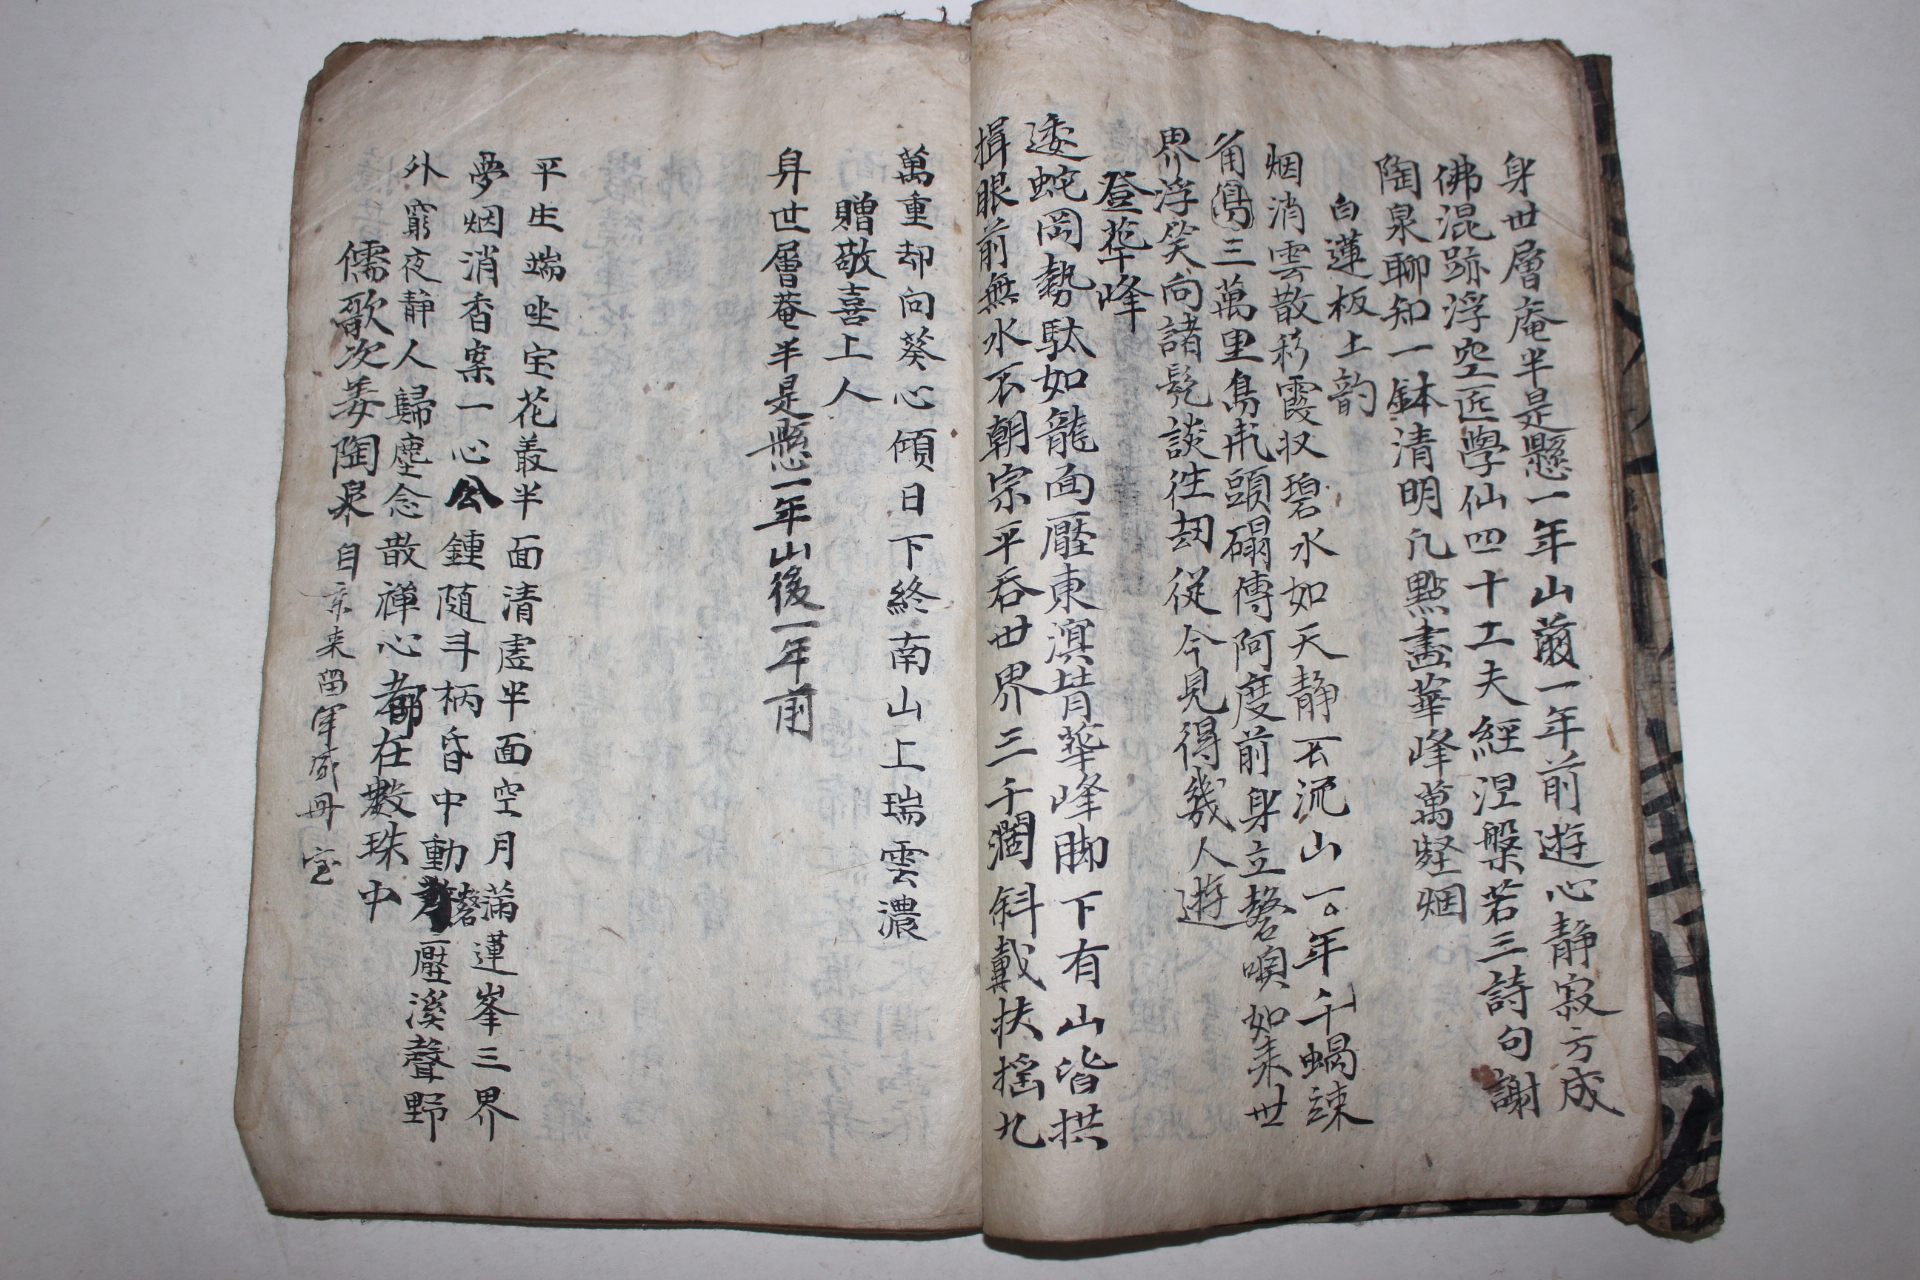 身世層庵半是懸一年山前一年前遊心靜寂方成
佛混跡浮空匹學仙四十工夫經涅槃若三詩句謝
陶泉聊知一鉢清明几點畫華峰萬壑烟
白蓮板上韵
烟消雲散彩霞収碧水如天靜不流山一年千蝸竦
角三萬里鳥爪頭礀傳阿度前身立磬喚如来世
界浮笑向諸髡談往刼從今見得幾人遊
登華峰
逶蛇岡勢駄如龍面壓東溟背華峰脚下有山皆拱
揖眼前無水不朝宗平呑世界三千濶斜戴扶搖九
萬重却向葵心傾日下終南山上瑞雲濃
贈敬喜上人
身世層菴半是懸一年山後一年前
平生端坐宝花叢半面清虛半面空月滿蓮峯三界
夢烟消香案一心公鍾随斗柄昏中動磬壓溪聲野
外窮夜靜人歸塵念散禅心都在數珠中
儒歌次姜陶泉自京来留軍威毋宝